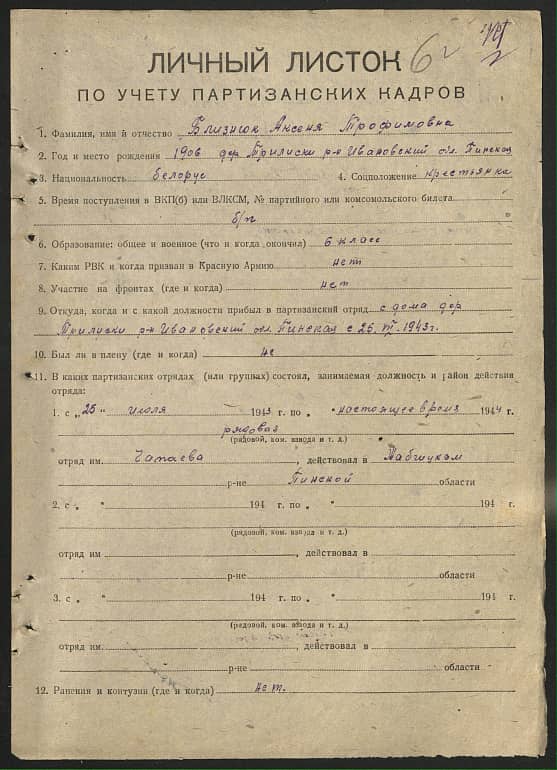 ЛИЧНЫЙ ЛИСТОК
ПО УЧЕТУ ПАРТИЗАНСКИХ КАДРОВ
1. Фамилия, имя и отчество Близнюк Аксеня Трофимовна
2. Год и место рождения 1906 дер Трилиски р-н Ивановский обл. Пинская
3. Национальность белорус 4. Соцположение крестьянка
5. Время поступления в ВКП(б) или ВЛКСМ, № партийного или комсомольского билета
б/п
6. Образование: общее и военное (что и когда окончил) 6 класс
7. Каким РВК и когда призван в Красную Армию нет
8. Участие на фронтах (где и когда) нет
9. Откуда, когда и с какой должности прибыл в партизанский отряд с дома дер
Трилиски р-н Ивановский обл. Пинская с 25. 1943г.
10. Был ли в плену (где и когда) не
11. В каких партизанских отрядах (или группах) состоял, занимаемая должность и район действия
отряда:
1. с „25" июля 1943 г. по „ " настоящее время 1944 г.
рядовая
(рядовой, ком. взвода и т. д.)
отряд им. Чапаева, действовал в
р-не Пинской области
2. с „ " 194 г. по „ " 194 г.
(рядовой, ком. взвода и т. д.)
отряд им , действовал в
р-не области
3. с „ " 194 г. по „ " 194 г.
(рядовой, ком. взвода и т. д.)
отряд им. , действовал в
р-не области
12. Ранения и контузии (где и когда) нет.